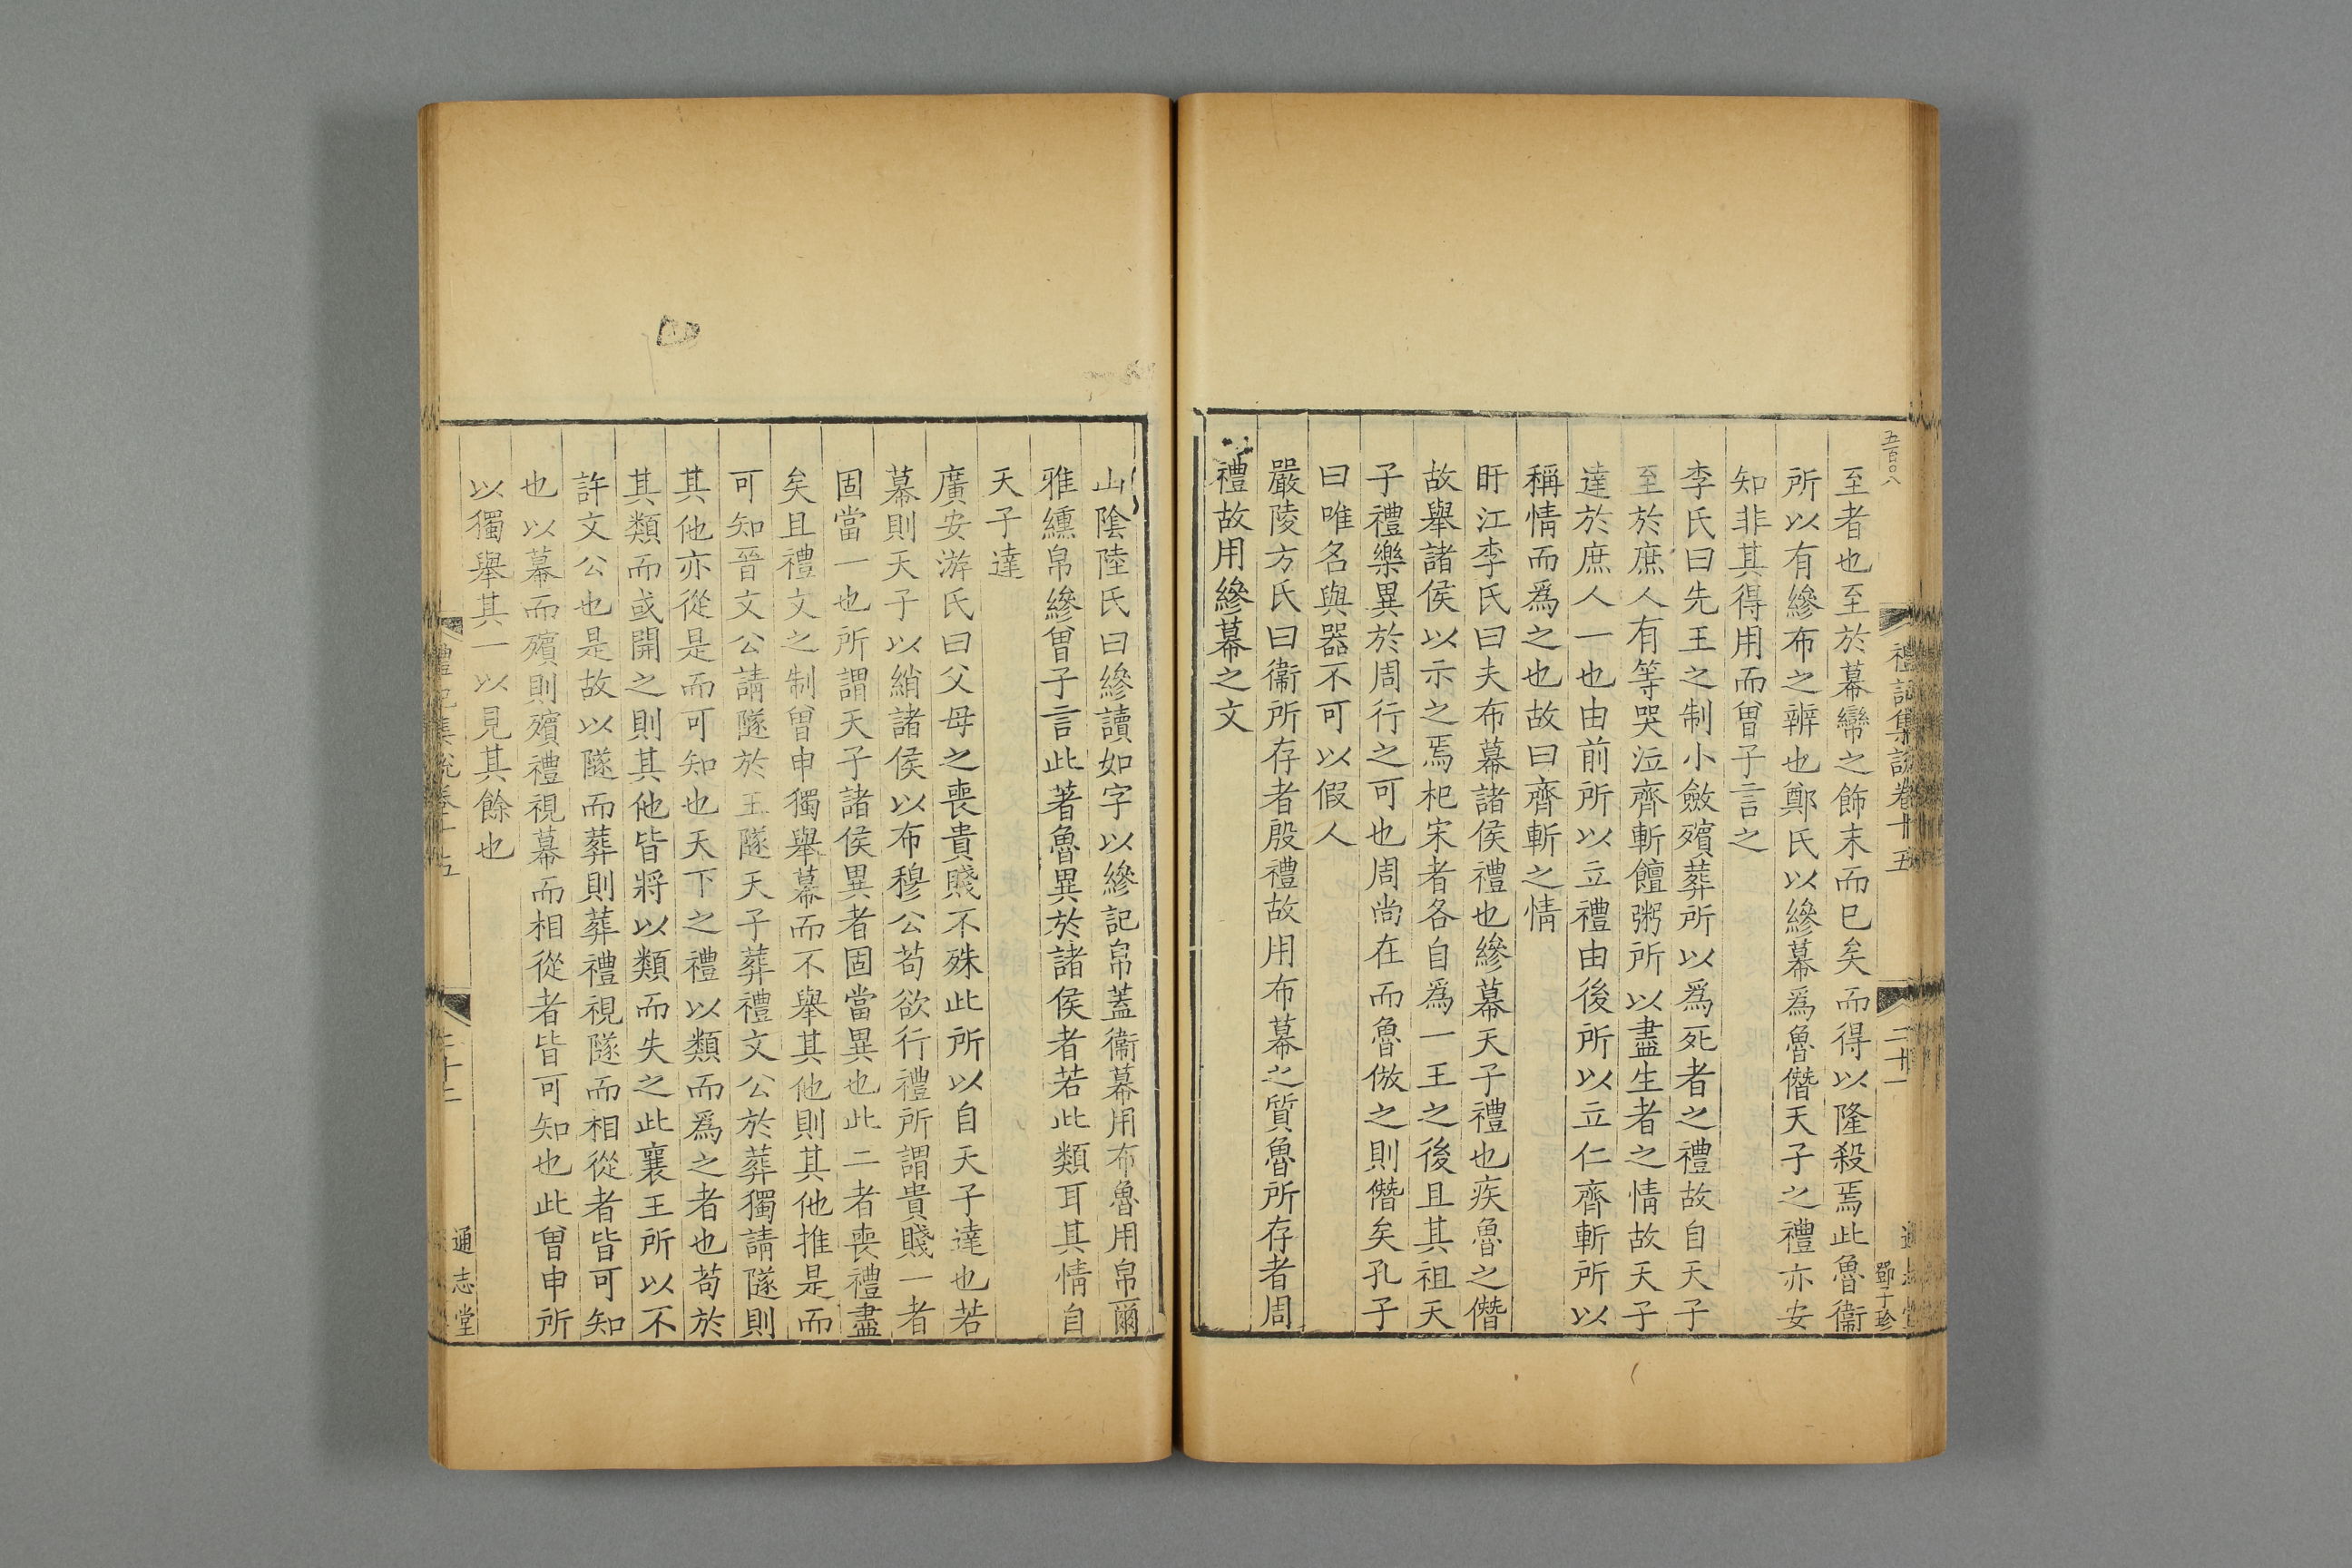 五百〇八
禮記集說卷十五
二十一
鄧子珍
至者也至於幕蠻之飾末而已矣而得以隆殺焉此魯衞
所以有縿布之辨也鄭氏以縿幕爲魯僭天子之禮亦安
知非其得用而曾子言之
李氏曰先王之制小斂殯葬所以爲死者之禮故自天子
至於庶人有等哭泣齊斬饘粥所以盡生者之情故天子
達於庶人一也由前所以立禮由後所以立仁齊斬所以
稱情而爲之也故曰齊斬之情
盱江李氏曰夫布幕諸侯禮也縿幕天子禮也疾魯之僭
故舉諸侯以示之焉杞宋者各自爲一王之後且其祖天
子禮樂異於周行之可也周尚在而魯倣之則僭矣孔子
曰唯名與器不可以假人
嚴陵方氏曰衞所存者殷禮故用布幕之質魯所存者周
禮故用縿幕之文
山陰陸氏曰縿讀如字以縿記帛蓋衞幕用布魯用帛爾
雅纁帛縿曾子言此著魯異於諸侯者若此類耳其情自
天子達
廣安游氏曰父母之喪貴賤不殊此所以自天子達也若
幕則天子以綃諸侯以布穆公苟欲行禮所謂貴賤一者
固當一也所謂天子諸侯異者固當異也此二者喪禮盡
矣且禮文之制曾申獨舉幕而不舉其他則其他推是而
可知晉文公請隧於王隧天子葬禮文公於葬獨請隧則
其他亦從是而可知也天下之禮以類而爲之者也苟於
其類而或開之則其他皆將以類而失之此襄王所以不
許文公也是故以隧而葬則葬禮視隧而相從者皆可知
也以幕而殯則殯禮視幕而相從者皆可知也此曾申所
以獨舉其一以見其餘也
通志堂